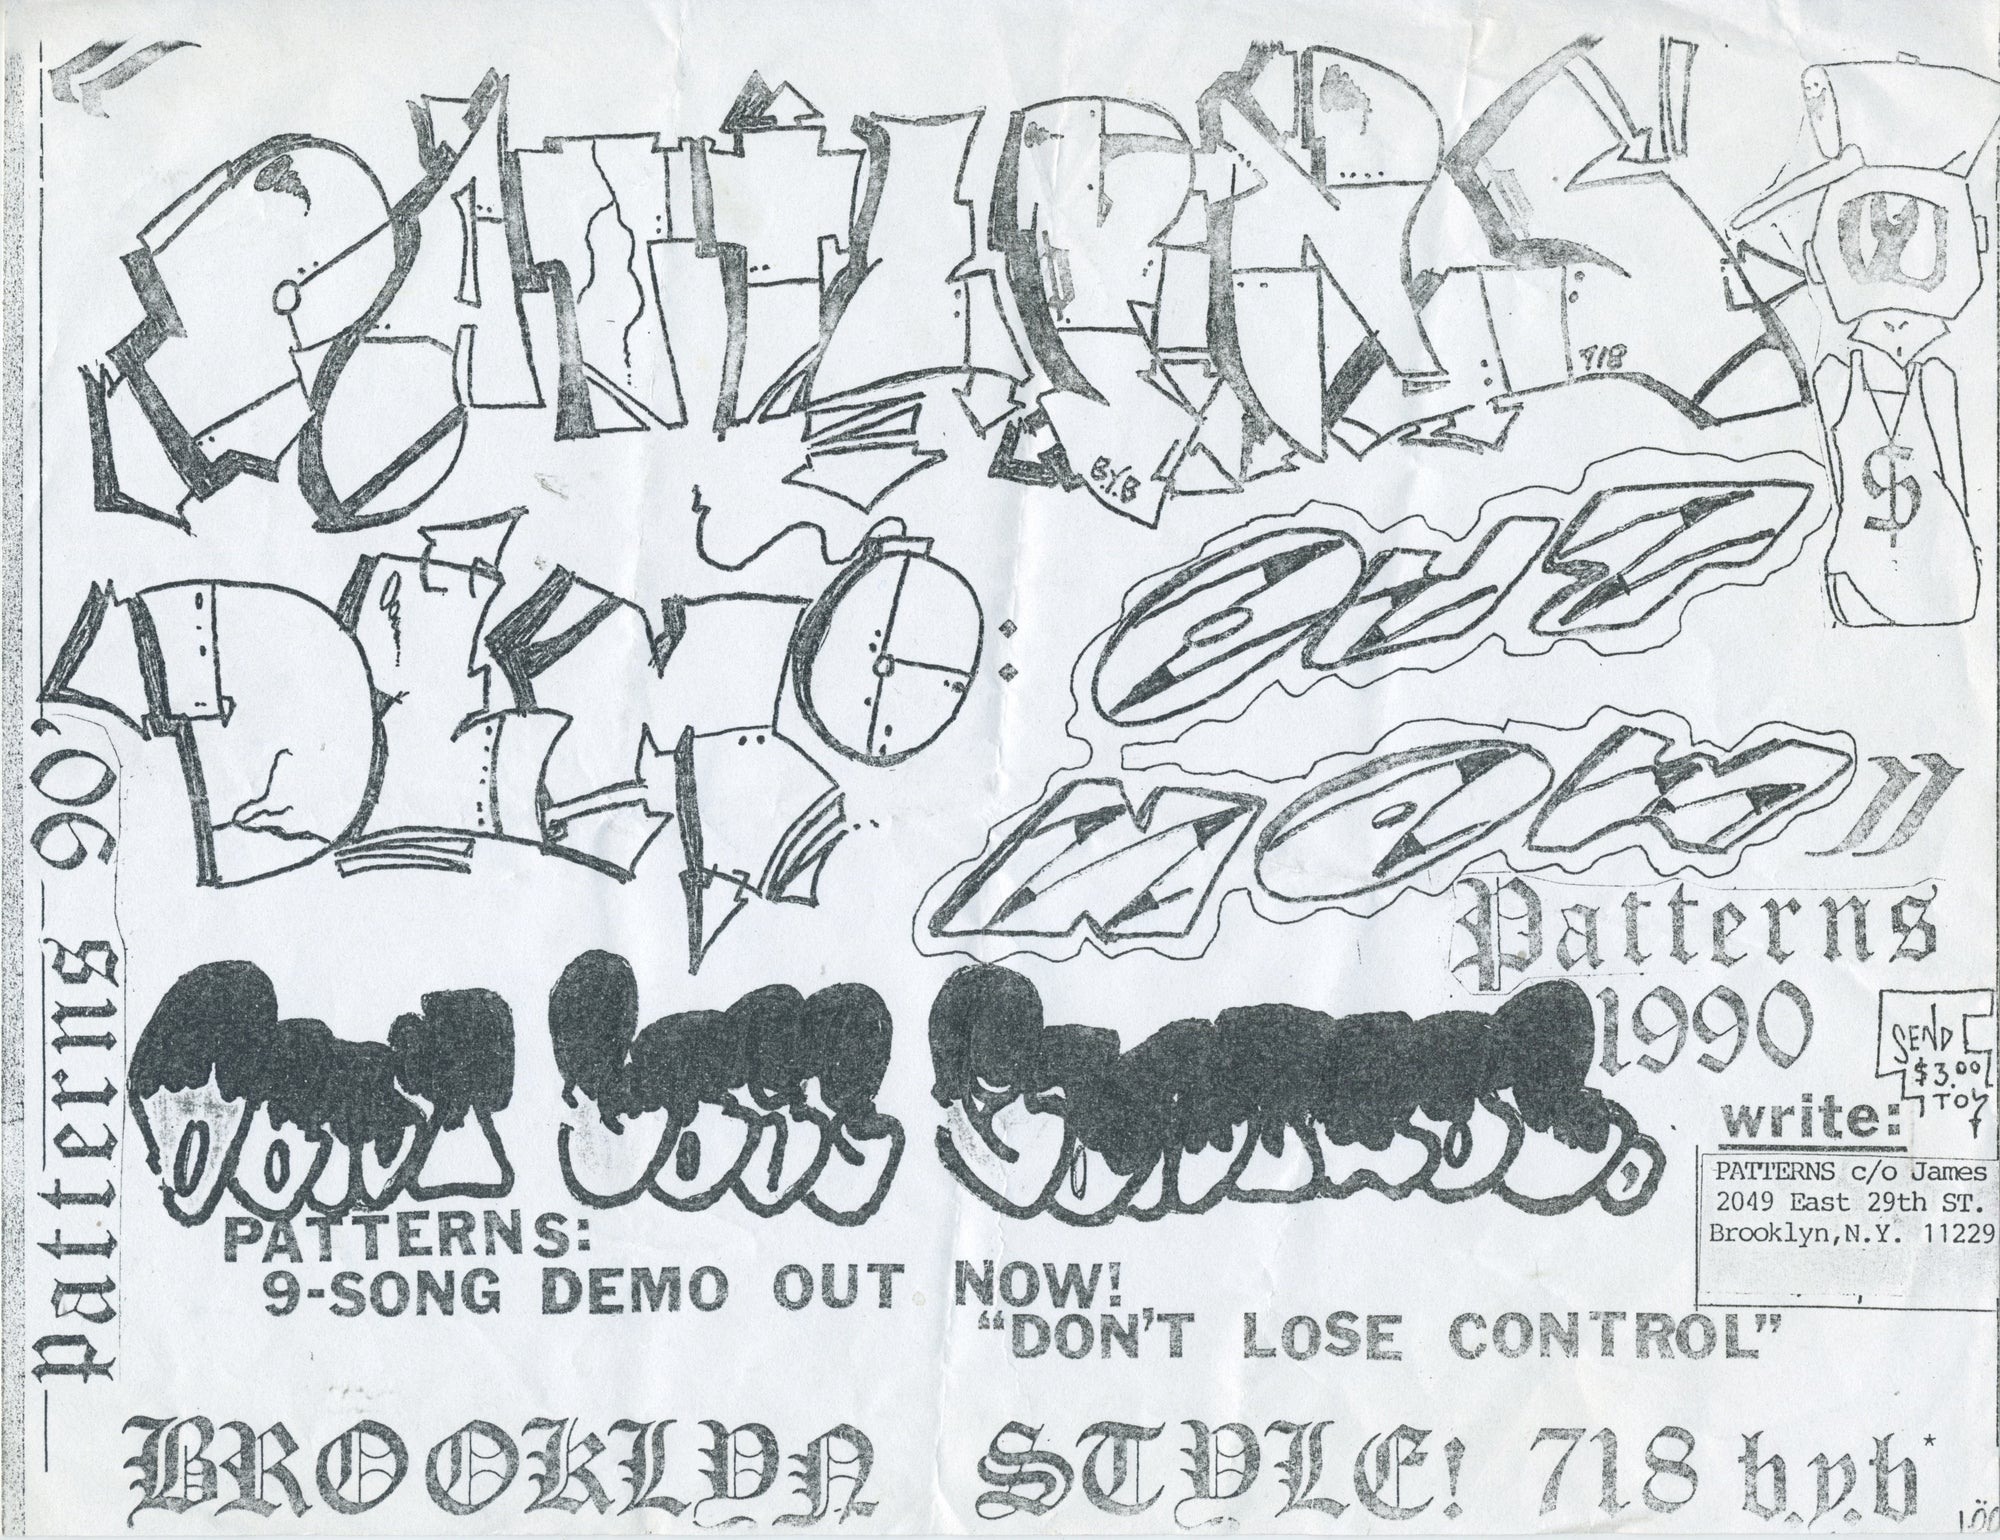 “PATTERNS
718
B.Y.B
$
DEMO:
OUT
NOW”
Patterns 90’
Patterns
1990
SEND
$3.00
TO
write:
PATTERNS c/o James
2049 East 29th ST.
Brooklyn,N.Y. 11229
DON'T LOSE CONTROL
PATTERNS:
9-SONG DEMO OUT NOW!
“DON'T LOSE CONTROL”
BROOKLYN STYLE! 718 b.y.b*